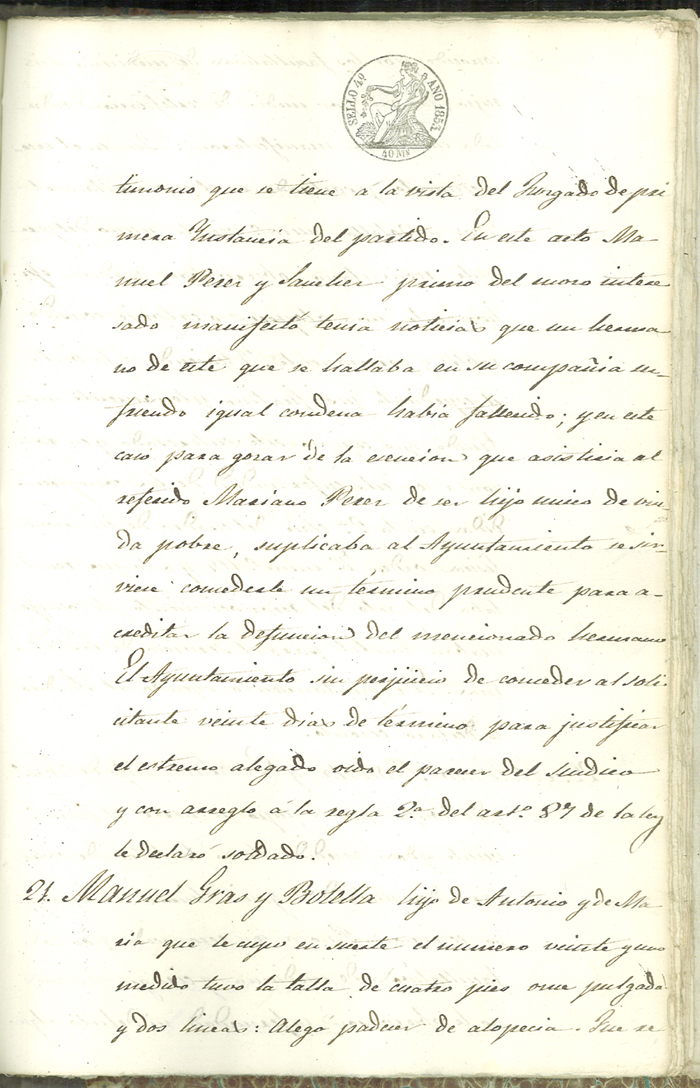 SELLO 4º AÑO 1853.
40 Ms
timonio que se tiene a la vista del Juzgado de pri
mera Ynstancia del partido. En este acto Ma-
nuel Perez y Sanchez primo del mozo intere
sado manifestó tenia noticias que un herma
no de este que se hallaba en su compañia su-
friendo igual condena habia fallecido; y en este
caso para gozar de la esencion que asistiria al
referido Mariano Perez de ser hijo unico de viu-
da pobre, suplicaba al Ayuntamiento se sir-
viese concederle un término prudente para a-
creditar la defuncion del mencionado hermano
El Ayuntamiento sin perjuicio de conceder al soli
citante veinte dias de término para justificar
el estremo alegado oido el parecer del Sindico
y con arreglo á la regla 2.ª del art.º 87 de la ley
le declaró soldado.
21. Manuel Gras y Botella hijo de Antonio y de Ma
ria que le cupo en suerte el numero veinte y uno
medido tuvo la talla de cuatro pies once pulgadas
y dos lineas: Alego padecer de alopecia. Fue re